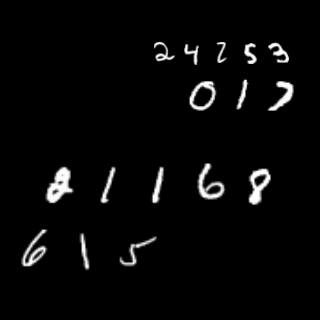 24253
017
21168
615